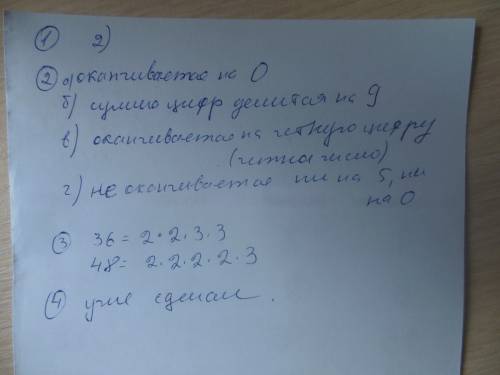 ① 2)
② а) оканчивается на 0
б) сумма цифр делится на 9
в) оканчивается на четную цифру
(четное число)
г) не оканчивается ни на 5, ни
на 0
③ 36 = 2 · 2 · 3 · 3
48 = 2 · 2 · 2 · 2 · 3
④ уже сделал.